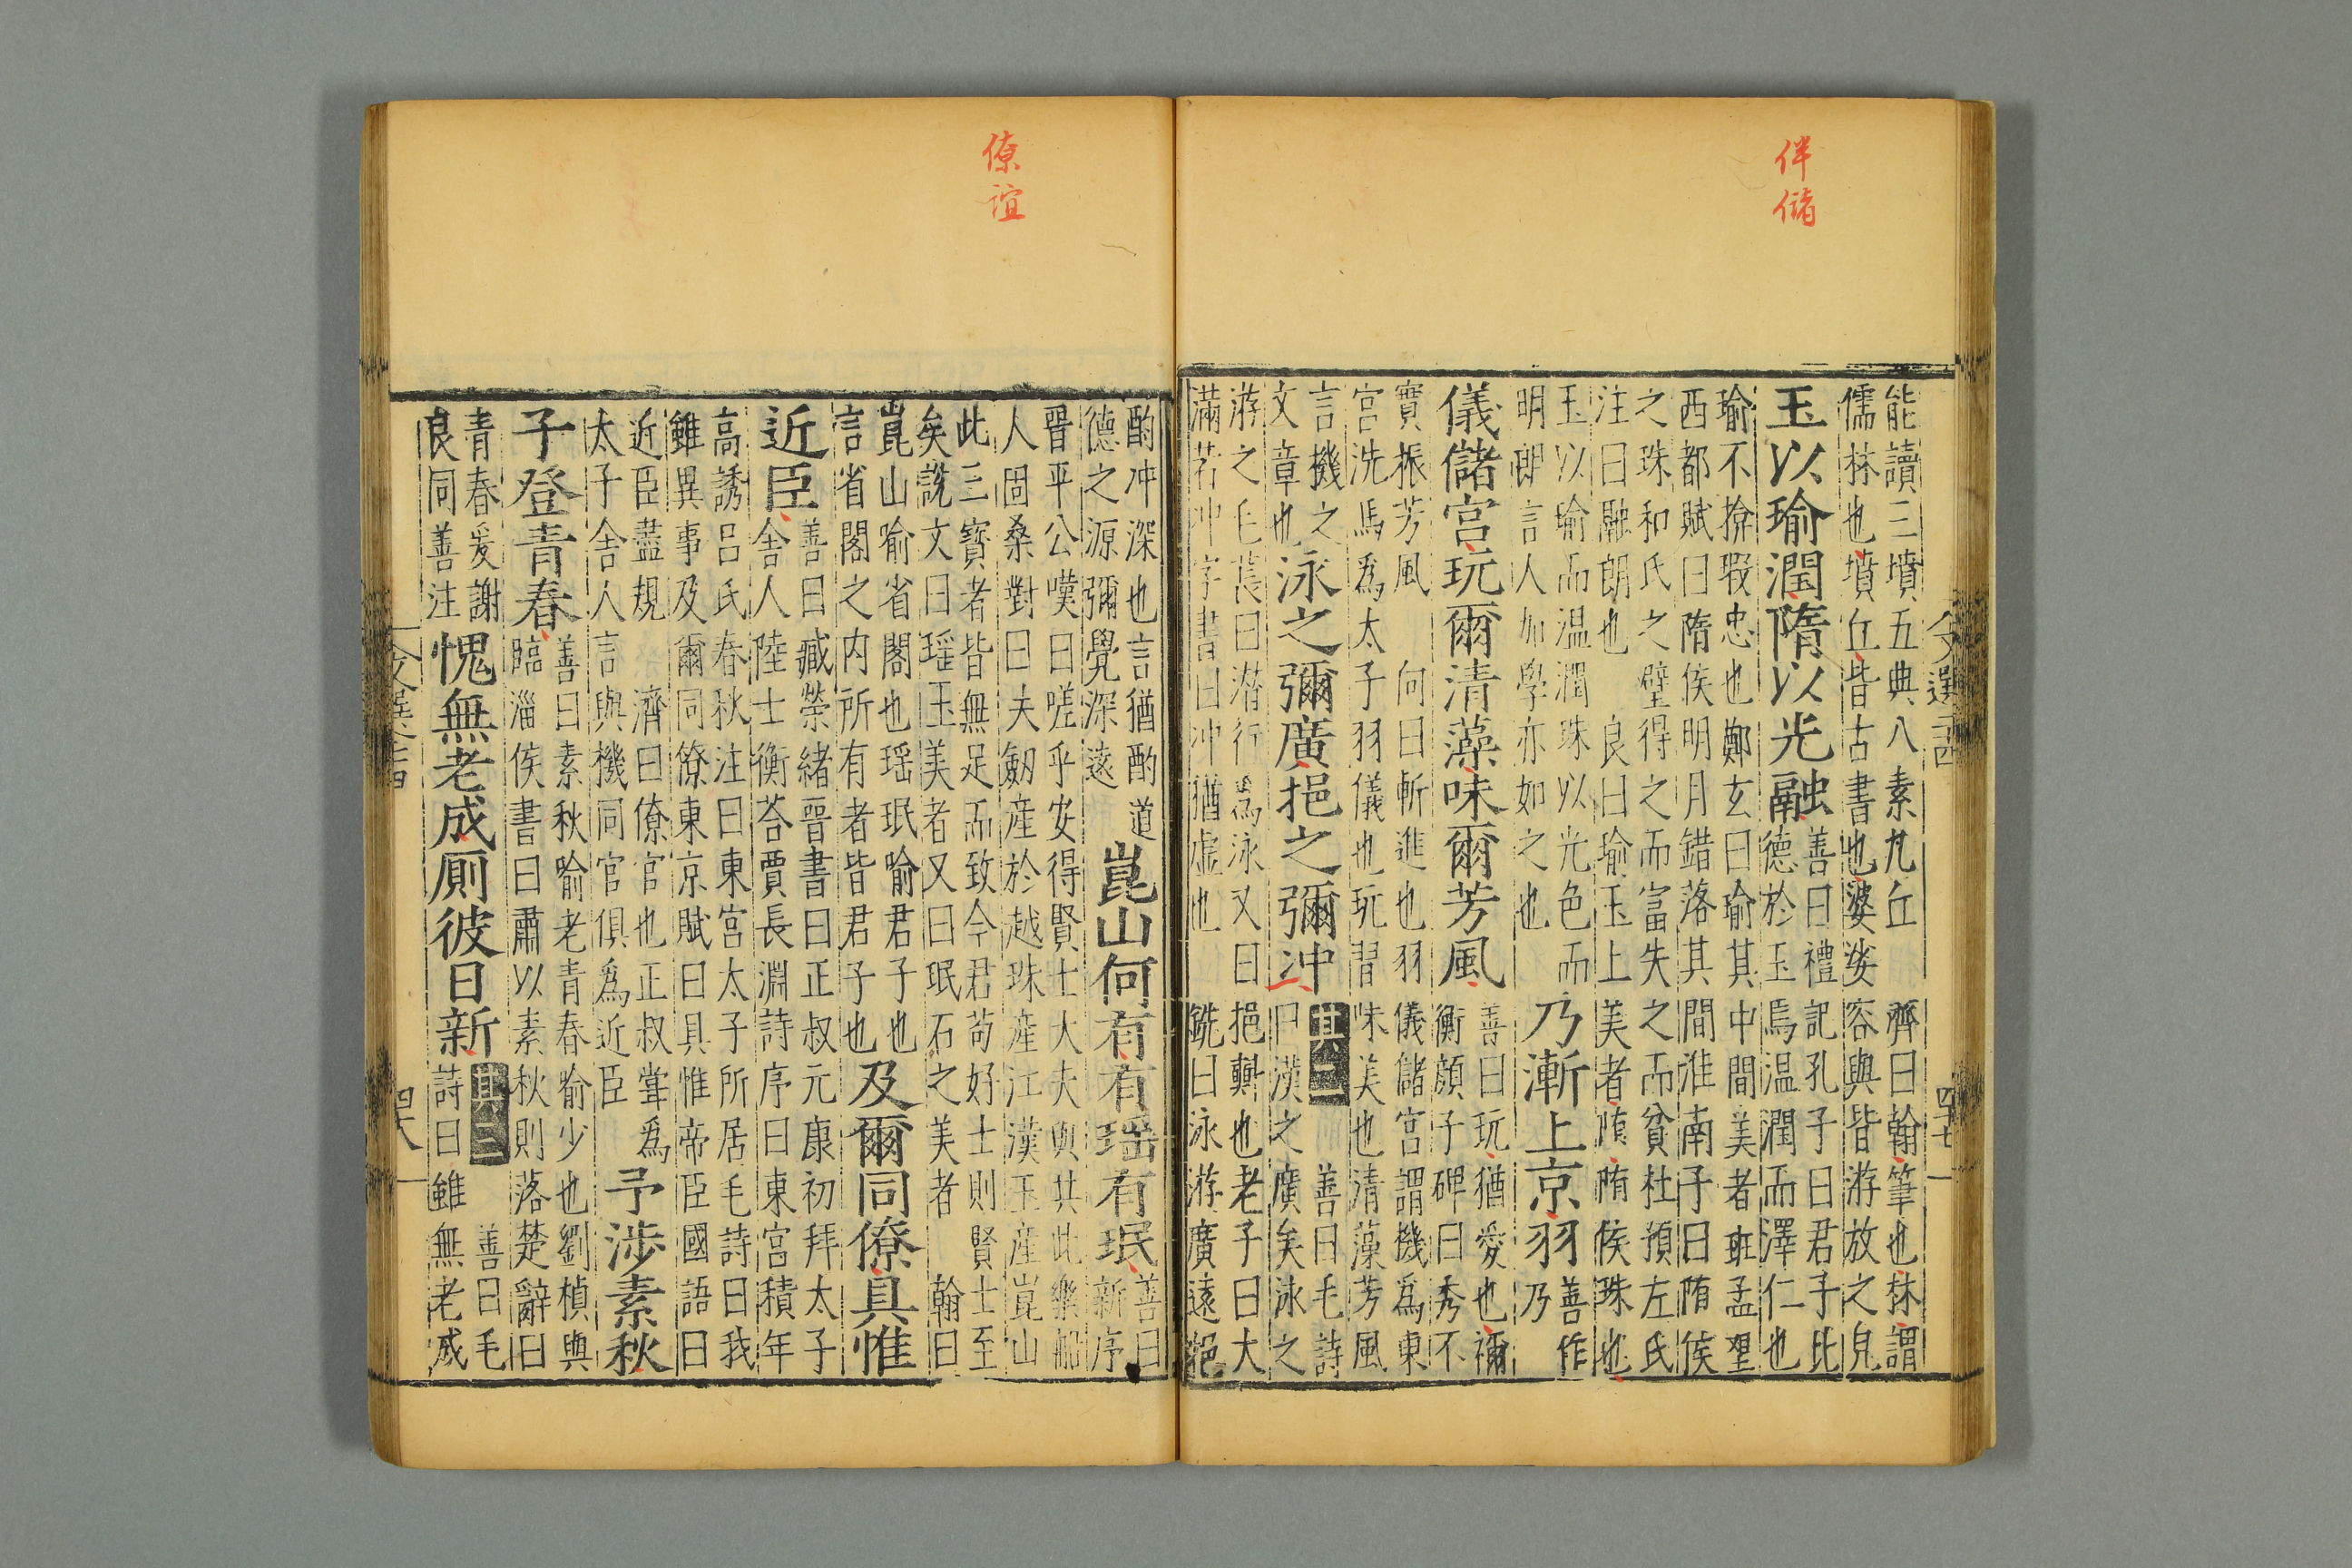 伴儲
文選二十四 四十七
能讀三墳五典八素九丘 齊曰翰筆也林謂
儒林也墳丘皆古書也婆娑 容與皆游放之皃
玉以瑜潤隋以光融
善曰禮記孔子曰君子比
德於玉焉温潤而澤仁也
瑜不揜瑕忠也鄭玄曰瑜其中間美者班孟堅
西都賦曰隋侯明月錯落其間淮南子曰隋侯
之珠和氏之璧得之而富失之而貧杜預左氏
注曰融朗也 良曰瑜玉上美者隋隋侯珠也
玉以瑜而温潤珠以光色而
明朗言人加學亦如之也
乃漸上京羽
善作
乃
儀儲宮玩爾清藻味爾芳風
善曰玩猶愛也禰
衡顔子碑曰秀不
實振芳風 向曰漸進也羽儀儲宮謂機為東
宮洗馬為太子羽儀也玩習味美也清藻芳風
言機之
文章也
泳之彌廣挹之彌沖
其二 善曰毛詩
曰漢之廣矣泳之
游之毛萇曰潛行為泳又曰挹㪺也老子曰大
滿若沖字書曰沖猶虛也 銑曰泳游廣遠挹
僚誼
酌沖深也言猶酌道
德之源彌覺深遠
崑山何有有瑶有珉
善曰
新序
晉平公嘆曰嗟乎安得賢士大夫與共此樂船
人固桑對曰夫劒産於越珠産江漢玉産崑山
此三寶者皆無足而致今君苟好士則賢士至
矣說文曰瑶玉美者又曰珉石之美者 翰曰
崑山喻省閣也瑶珉喻君子也
言省閣之内所有者皆君子也
及爾同僚具惟
近臣
善曰臧榮緒晉書曰正叔元康初拜太子
舍人陸士衡荅賈長淵詩序曰東宮積年
高誘呂氏春秋注曰東宮太子所居毛詩曰我
雖異事及爾同僚東京賦曰具惟帝臣國語曰
近臣盡規 濟曰僚官也正叔甞為
太子舍人言與機同官俱為近臣
予涉素秋
子登青春
善曰素秋喻老青春喻少也劉楨與
臨淄侯書曰肅以素秋則落楚辭曰
青春爰謝
良同善注
愧無老成厠彼日新
其三 善曰毛
詩曰雖無老成
文選二十四 四十八